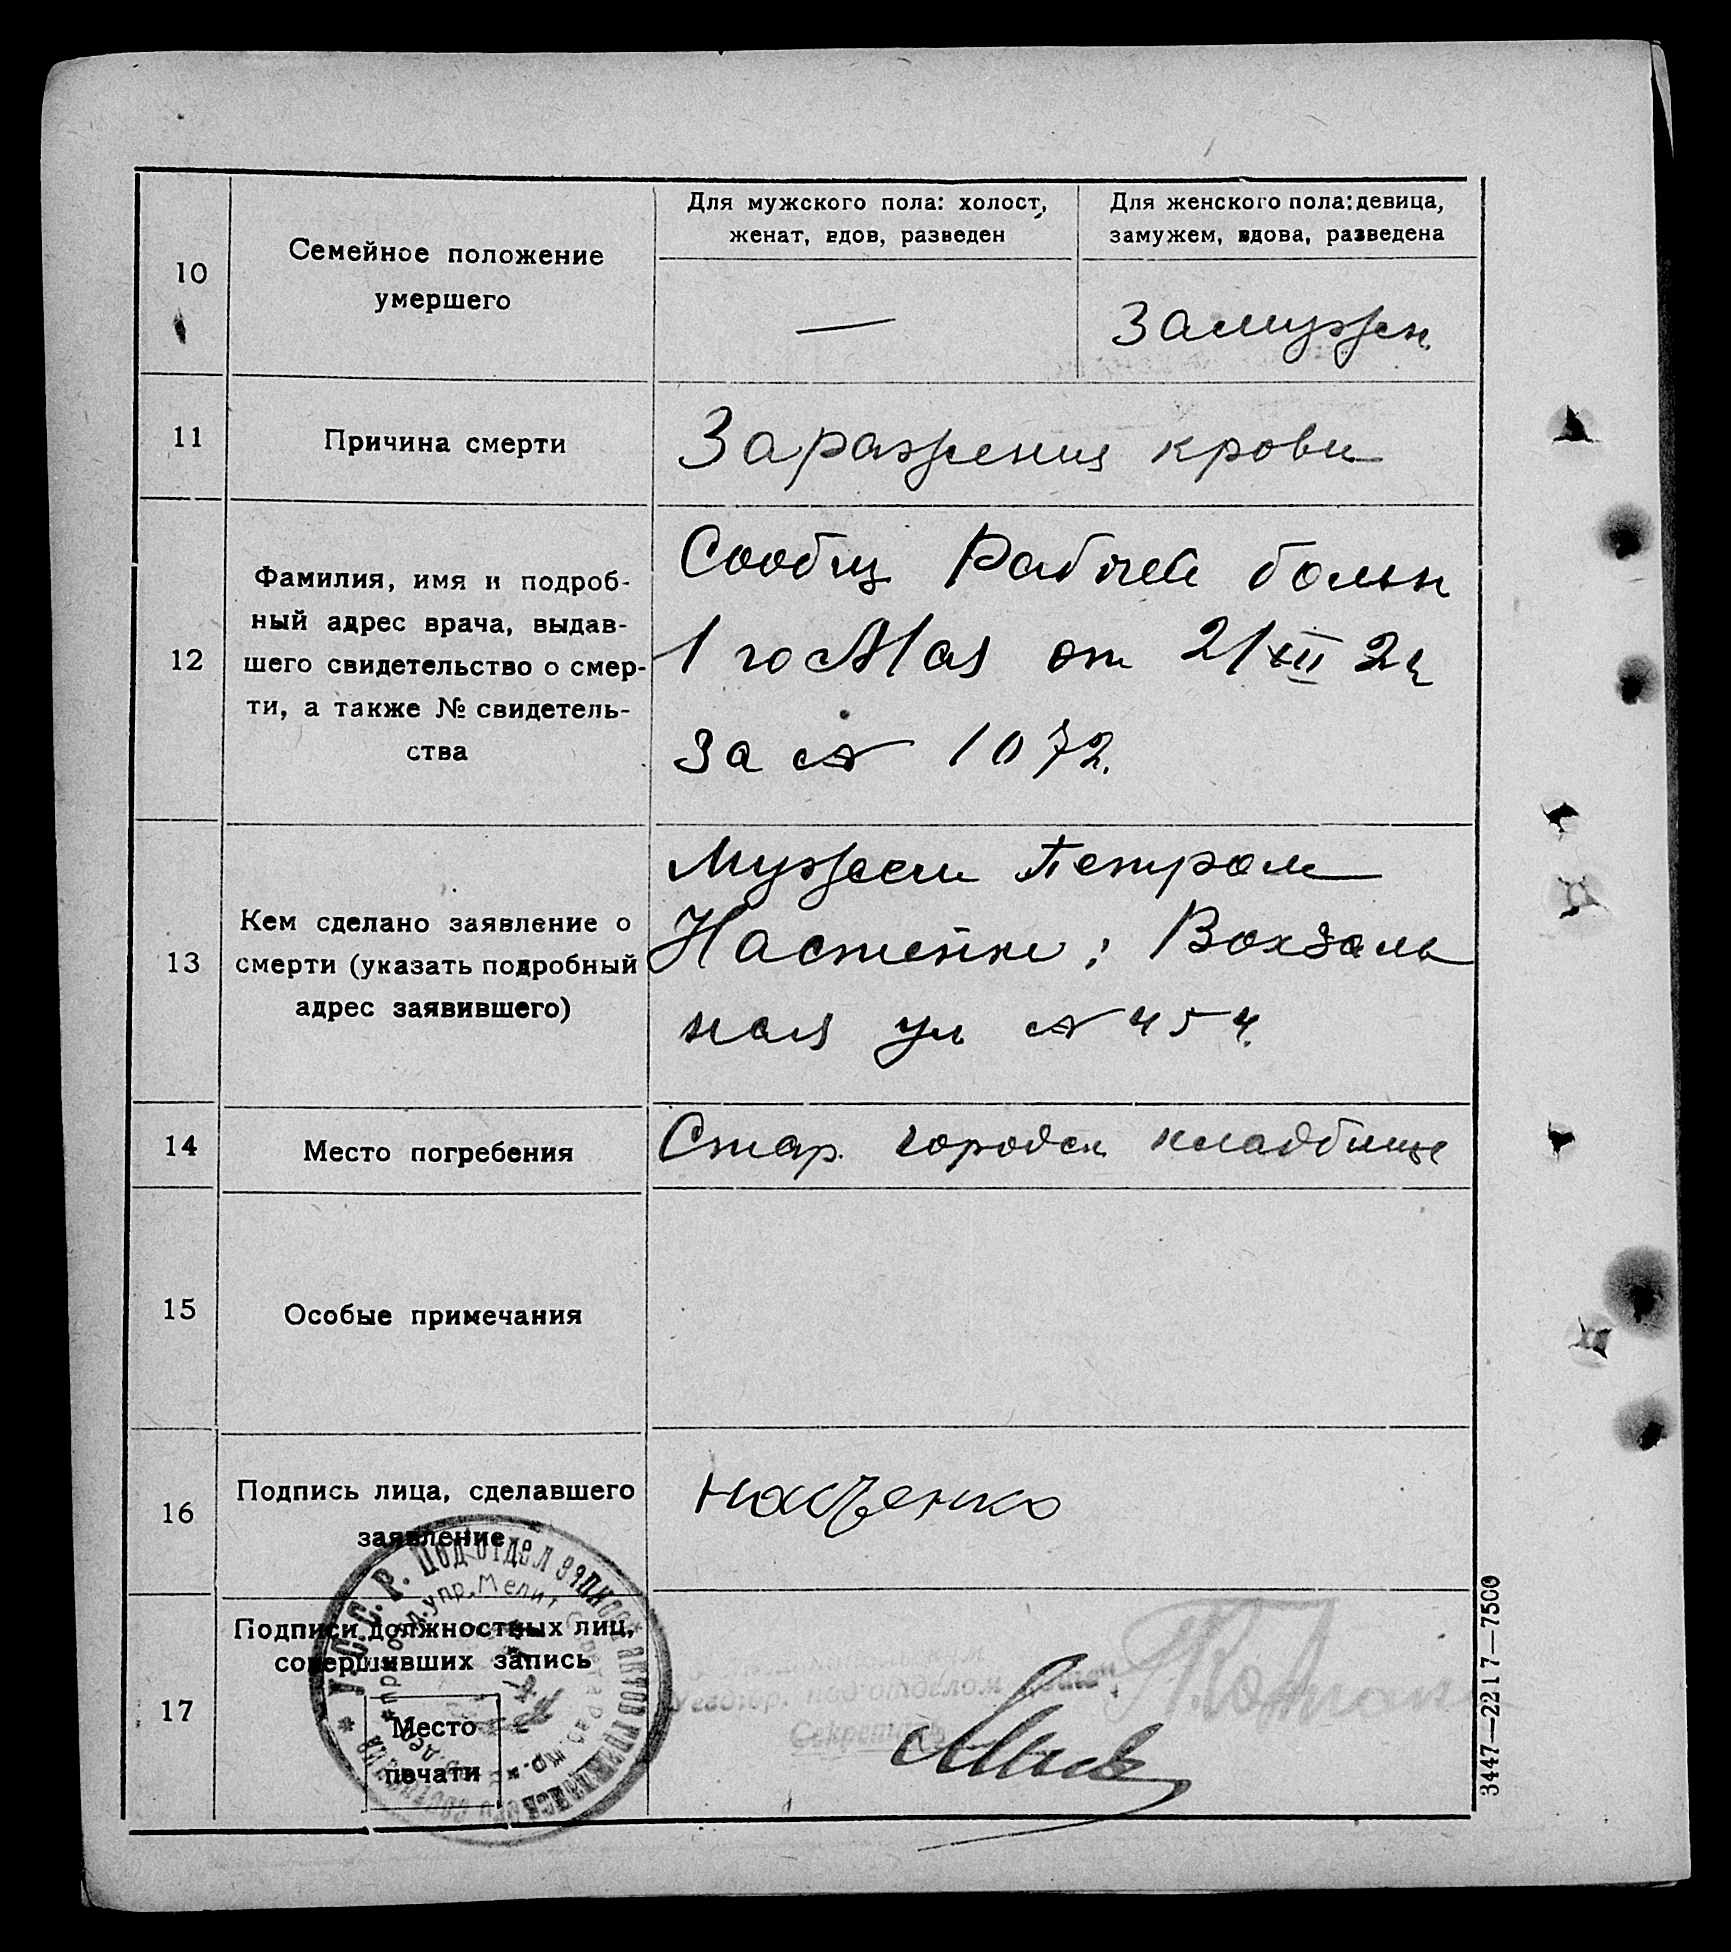 10
Семейное положение
умершего
Для мужского пола: холост,
женат, вдов, разведен
Для женского пола: девица,
замужем, вдова, разведена
—
Замужем
11
Причина смерти
Заражения крови
12
Фамилия, имя и подроб-
ный адрес врача, выдав-
шего свидетельство о смер-
ти, а также № свидетель-
ства
Сообщ Рабочей больн
1го Мая от 21 XII 24
за № 1072.
13
Кем сделано заявление о
смерти (указать подробный
адрес заявившего)
Мужем Петром
Вокзаль
ная ул № 454.
14
Место погребения
Стар. городск кладбище
15
Особые примечания
16
Подпись лица, сделавшего
заявление
17
Подписи должностных лиц,
совершивших запись
Место
печати
У.С.С.Р. Подотдел записей актов гражданского состояния
Секретарь
3447—2217—7500